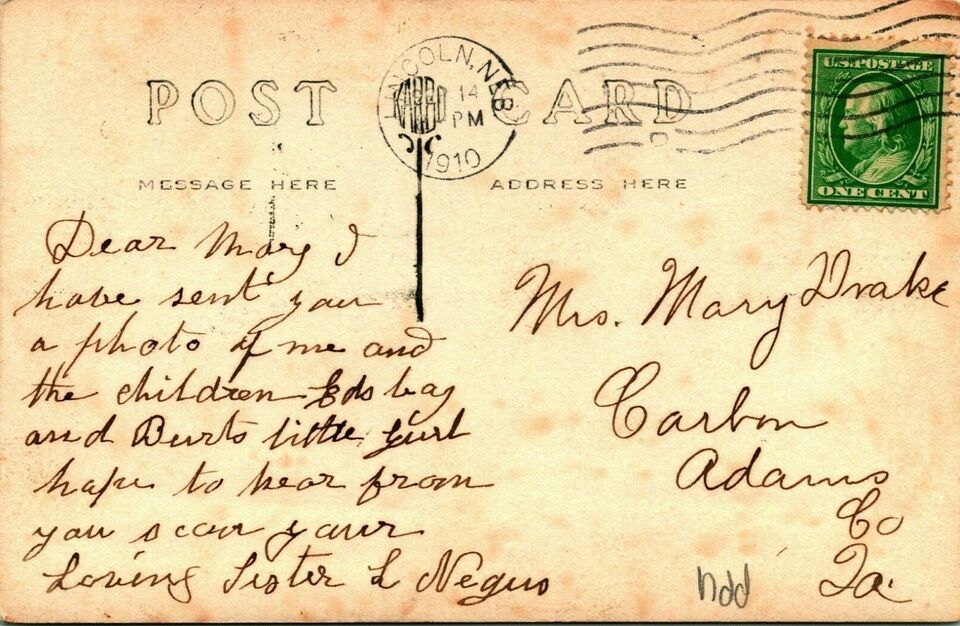 POST CARD
LINCOLN, NEB
14
PM
1910
U.S. POSTAGE
ONE CENT
MESSAGE HERE
ADDRESS HERE
Dear Mary I
have sent you
a photo of me and
the children Eds boy
and Burts little girl
hope to hear from
you soon your
Loving Sister L Negus
Mrs. Mary Drake
Carbon
Adams
Co
Ia.